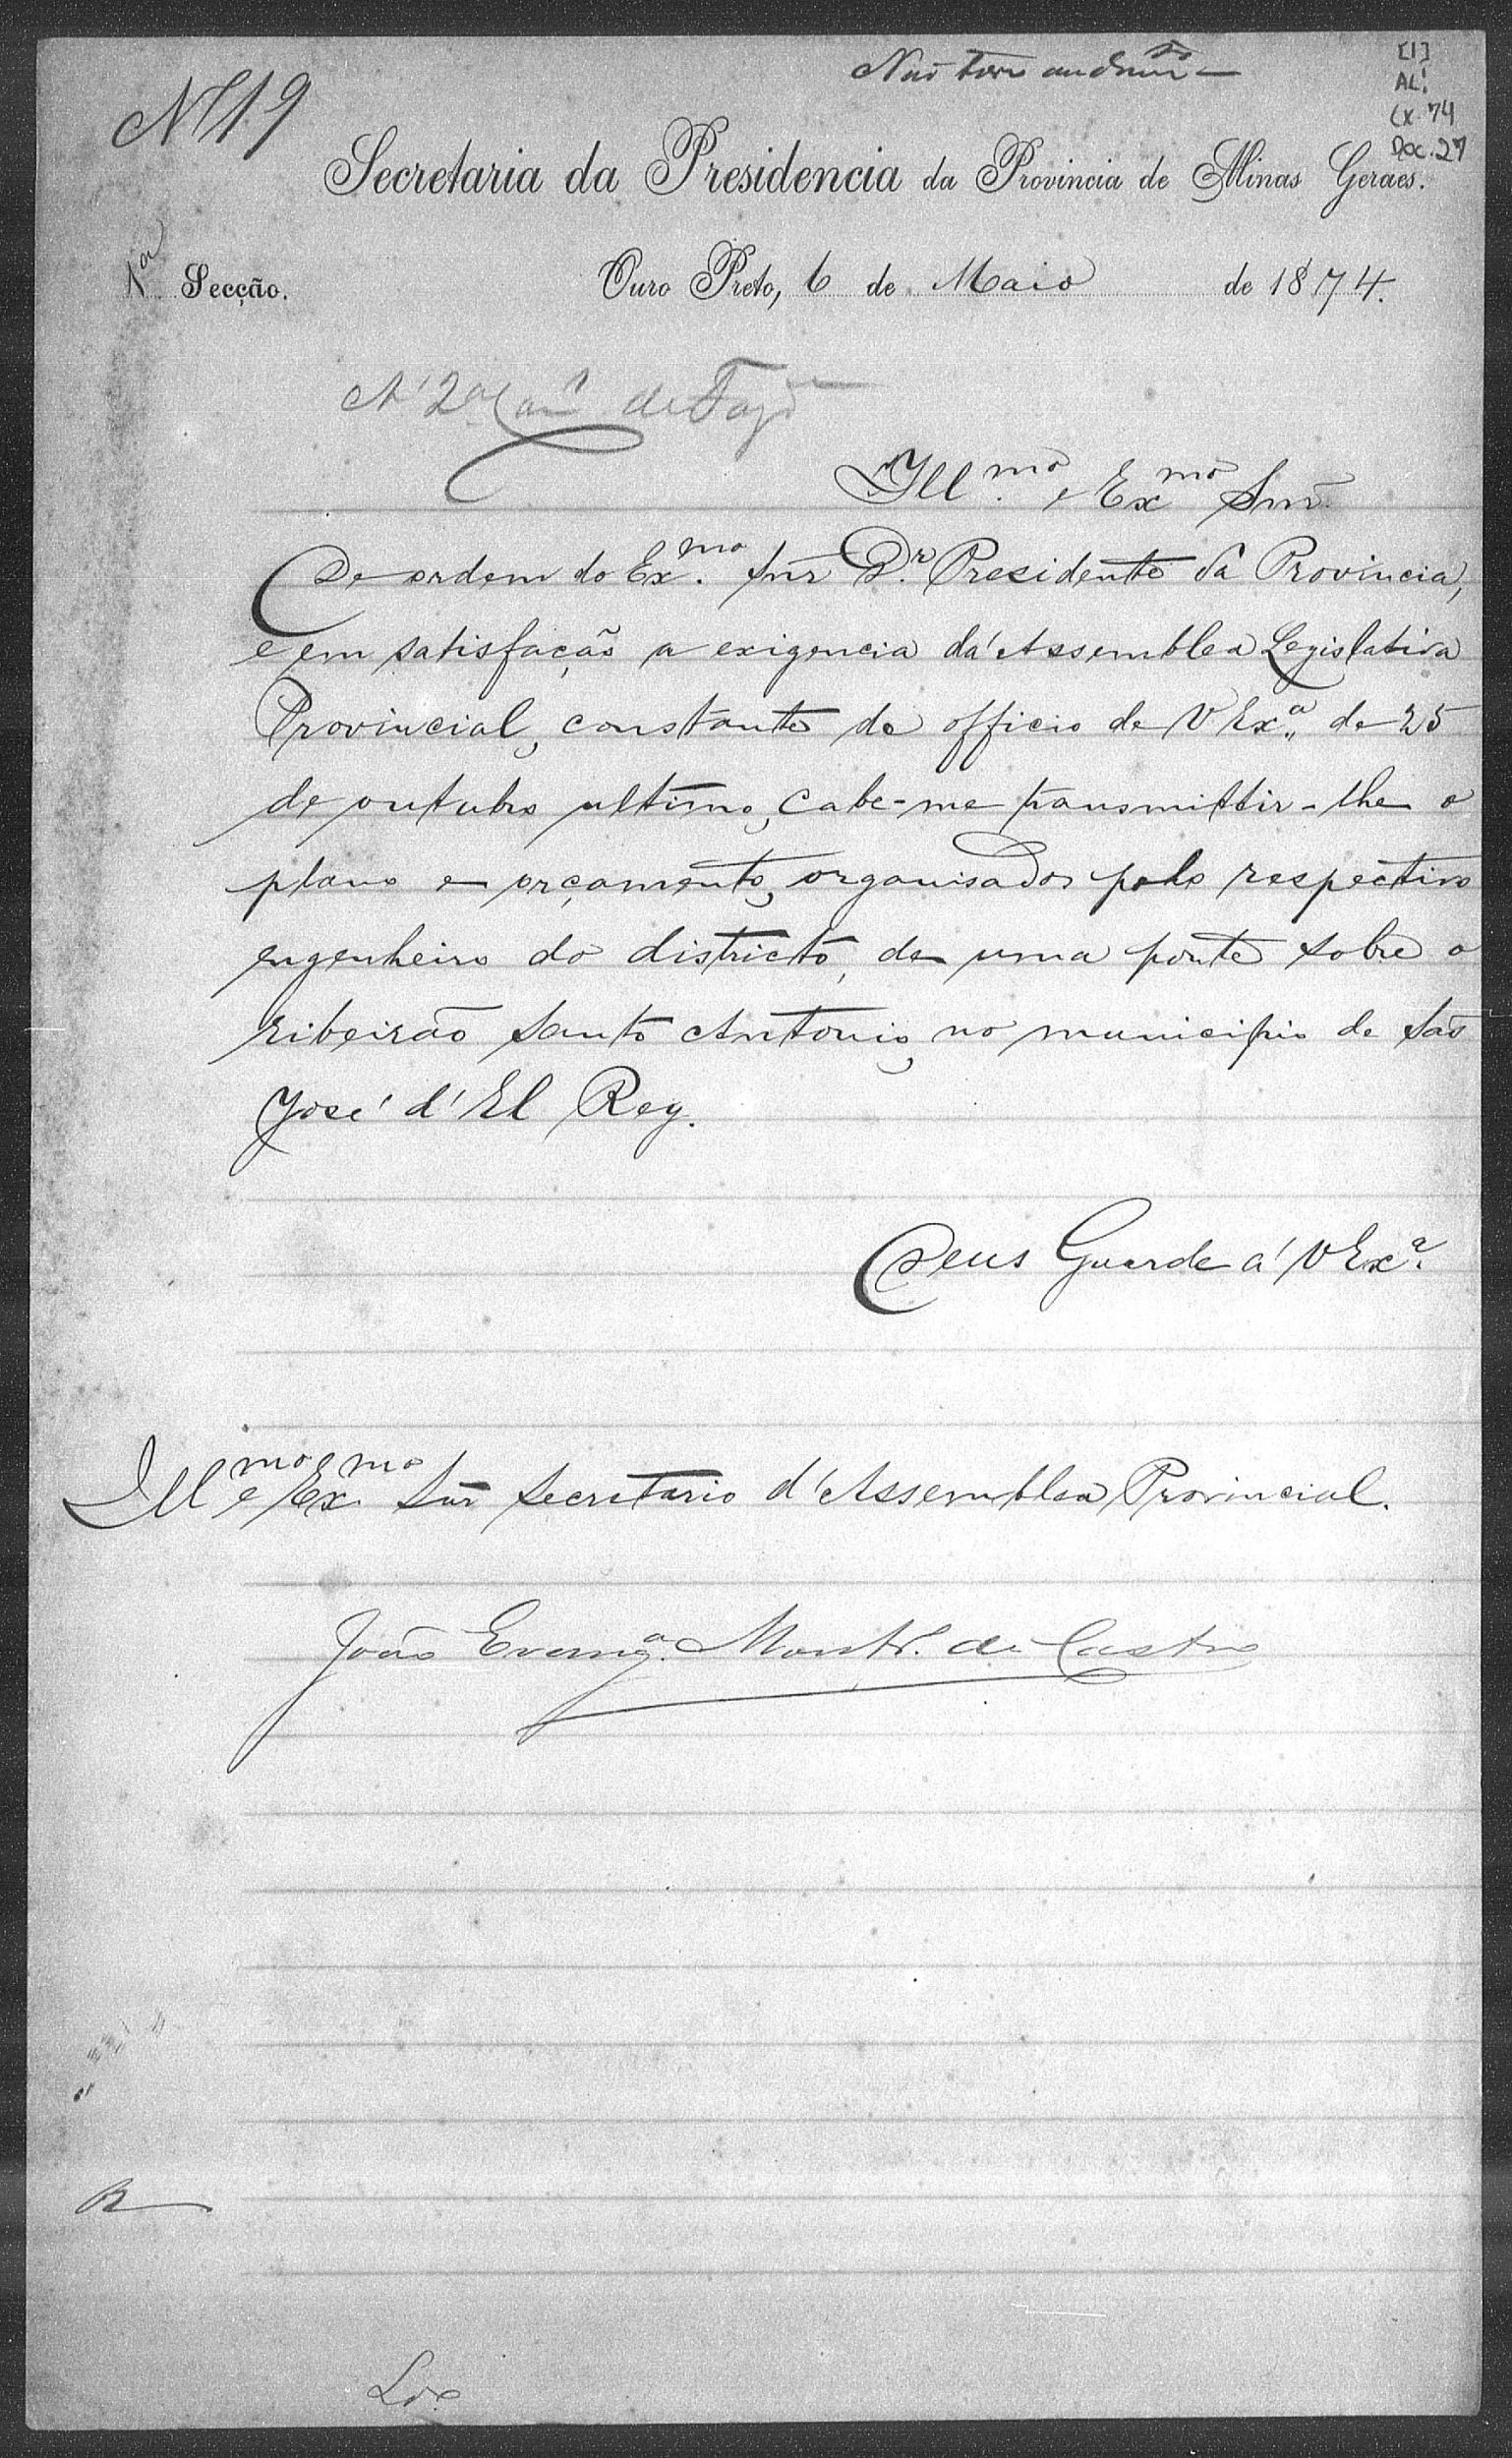 [1]
AL!
Cx. 74
Doc. 27
Não teve
Nº 19
Secretaria da Presidencia da Provincia de Minas Geraes.
1ª Secção. Ouro Preto, 6 de Maio de 1874.
A' 2ª de
Illmo. e Exmo Snr.
De ordem do Exmo. Snr Dr. Presidente da Provincia,
e em satisfação a exigencia da Assemblea Legislativa
Provincial, constante do officio de V Exª. de 25
de outubro ultimo, cabe-me transmittir-lhe o
plano e orçamento, organisados pelo respectivo
engenheiro do districto, de uma ponte sobre o
ribeirão Santo Antonio, no municipio de São
José d'El Rey.
Deus Guarde a' V Exª.
Illmo e Exmo. Snr Secretario d'Assemblea Provincial.
João Evang.ª Montr. de Castro